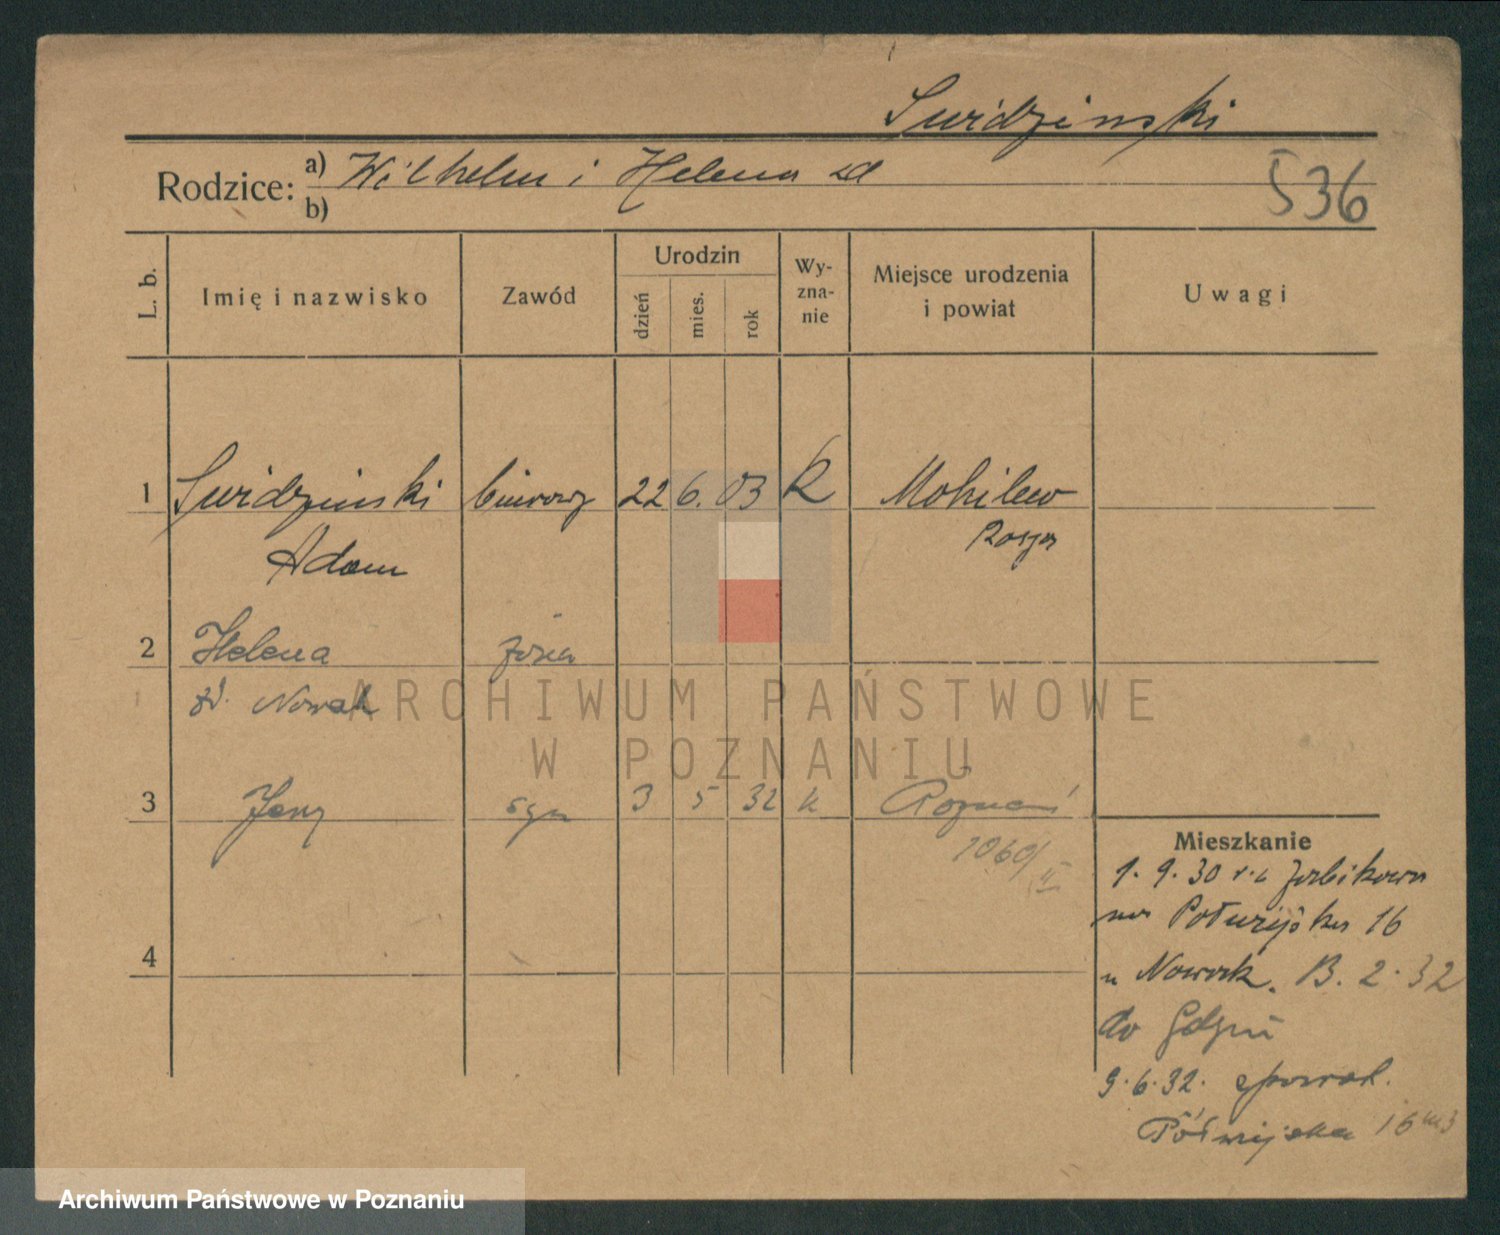 Swidzinski
Rodzice: a) Wilhelm i Helena zd
b)
536
L. b.
Imię i nazwisko
Zawód
Urodzin
dzień
mies.
rok
Wy-
zna-
nie
Miejsce urodzenia
i powiat
Uwagi
1 Swidzinski biurowy 22 6. 03 k Mohilew
Adam Rosja
2 Helena żona
zd. Nowak
3 Jerzy syn 3 5 32 k Poznań
1060/II
4
Mieszkanie
1. 9. 30 Żabikowa
16
u Nowak. 13. 2. 32
do Gdyni
9. 6. 32. spowrot.
Półwiejska 16 m 3
ARCHIWUM PAŃSTWOWE
W POZNANIU
Archiwum Państwowe w Poznaniu